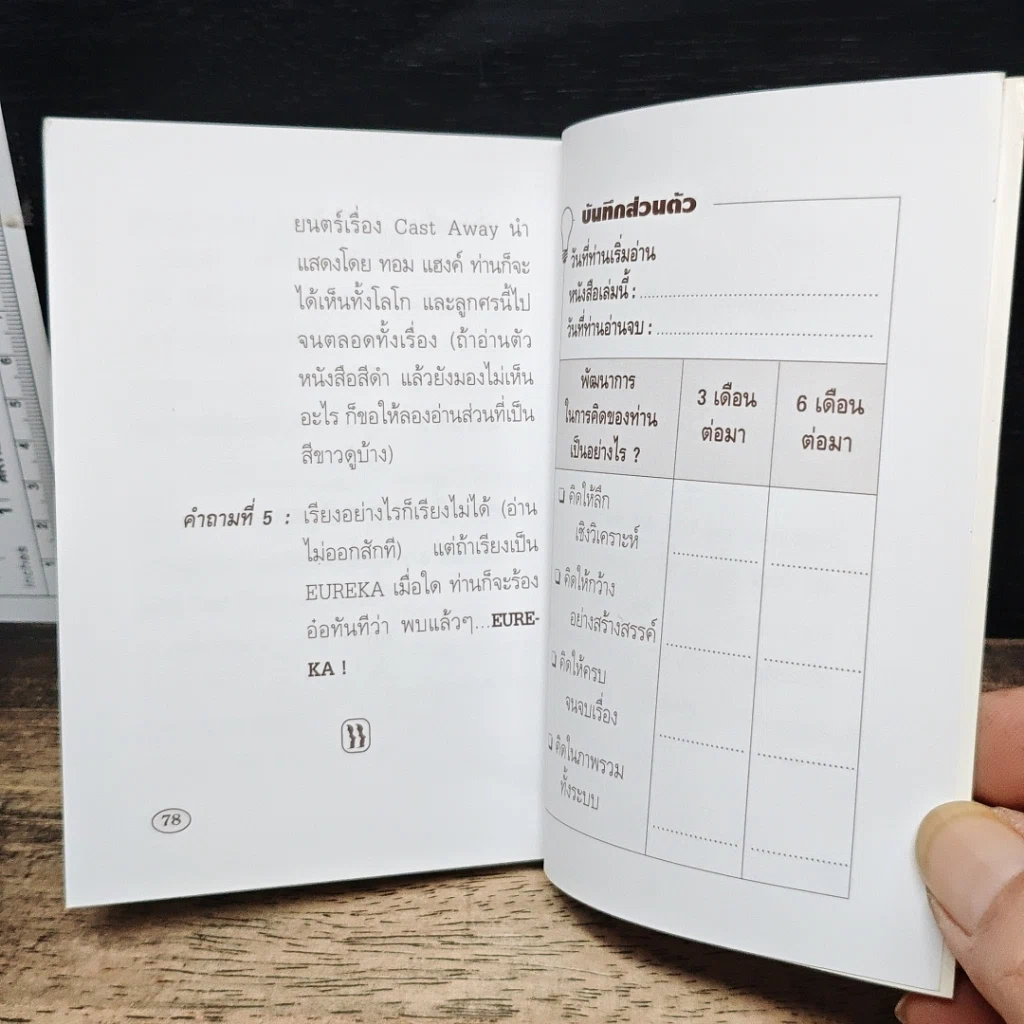 ยนตร์เรื่อง Cast Away นำ
แสดงโดย ทอม แฮงค์ ท่านก็จะ
ได้เห็นทั้งโลโก และลูกศรนี้ไป
จนตลอดทั้งเรื่อง (ถ้าอ่านตัว
หนังสือสีดำ แล้วยังมองไม่เห็น
อะไร ก็ขอให้ลองอ่านส่วนที่เป็น
สีขาวดูบ้าง)
คำถามที่ 5 : เรียงอย่างไรก็เรียงไม่ได้ (อ่าน
ไม่ออกสักที) แต่ถ้าเรียงเป็น
EUREKA เมื่อใด ท่านก็จะร้อง
อ๋อทันทีว่า พบแล้วๆ...EURE-
KA !
78
บันทึกส่วนตัว
วันที่ท่านเริ่มอ่าน
หนังสือเล่มนี้ :
วันที่ท่านอ่านจบ :
พัฒนาการ
ในการคิดของท่าน
เป็นอย่างไร ?
3 เดือน
ต่อมา
6 เดือน
ต่อมา
คิดให้ลึก
เชิงวิเคราะห์
คิดให้กว้าง
อย่างสร้างสรรค์
คิดให้ครบ
จนจบเรื่อง
คิดในภาพรวม
ทั้งระบบ
inches